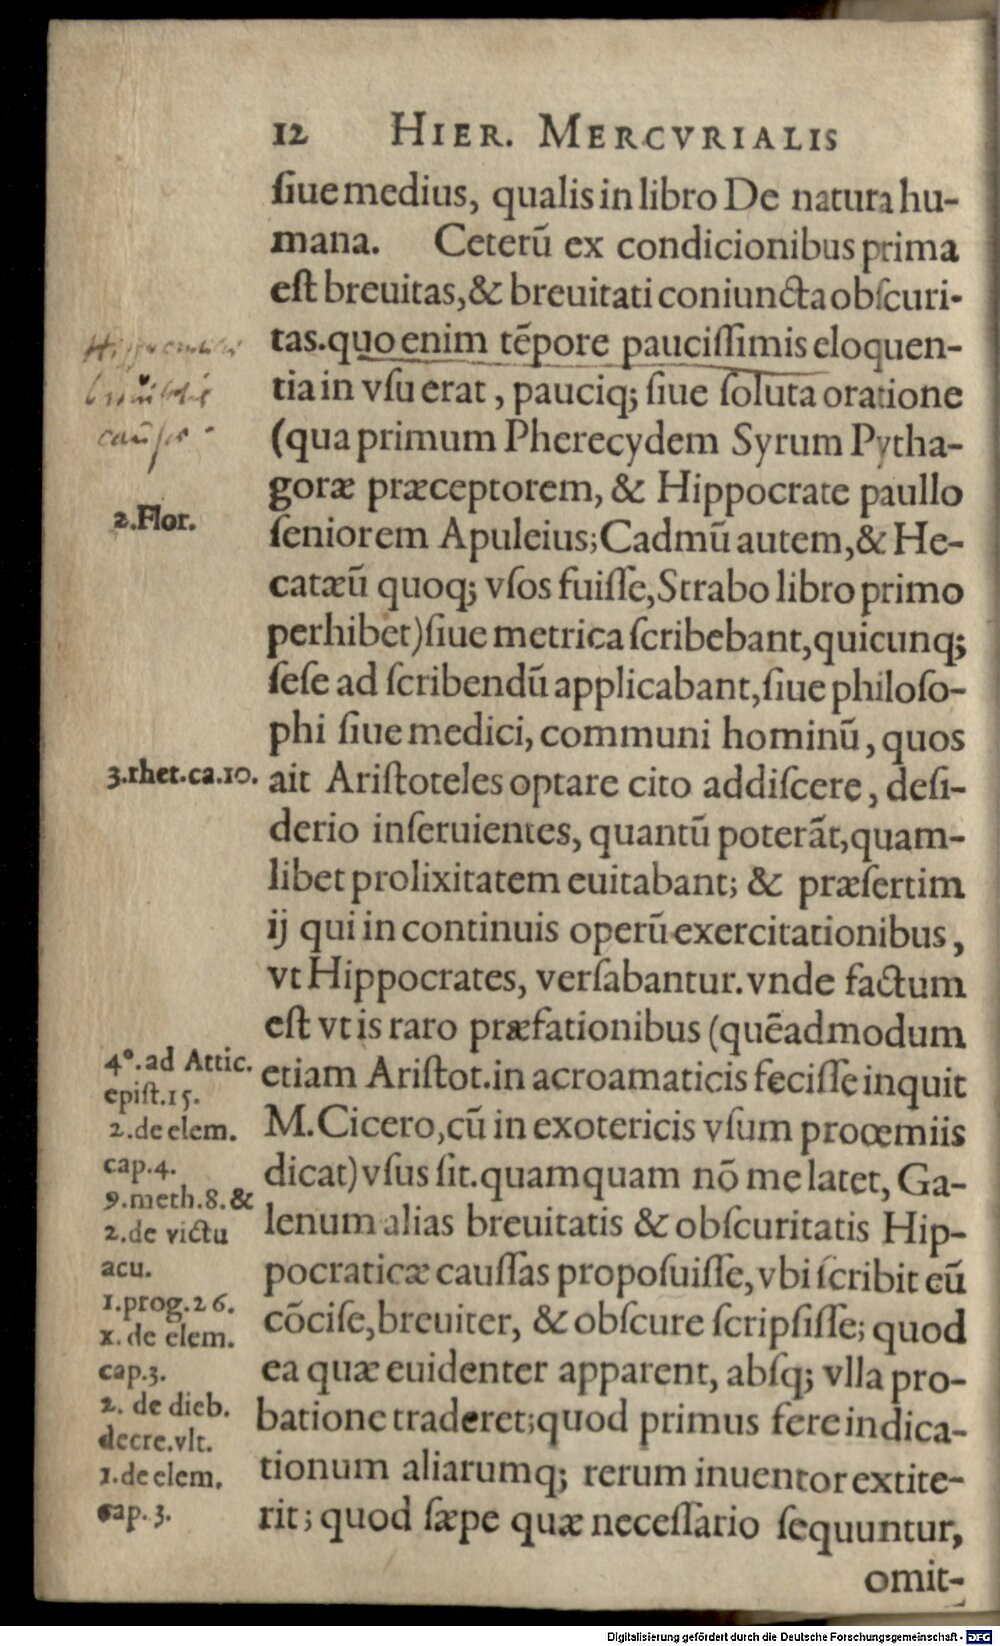 12 HIER. MERCVRIALIS
ſiue medius, qualis in libro De natura hu-
mana. Ceterũ ex condicionibus prima
eſt breuitas, & breuitati coniuncta obſcuri-
tas. quo enim tẽpore pauciſſimis eloquen-
tia in vſu erat, pauciq; ſiue ſoluta oratione
(qua primum Pherecydem Syrum Pytha-
goræ præceptorem, & Hippocrate paullo
2.Flor.
ſeniorem Apuleius; Cadmũ autem, & He-
catæũ quoq; vſos fuiſſe, Strabo libro primo
perhibet) ſiue metrica ſcribebant, quicunq;
ſeſe ad ſcribendũ applicabant, ſiue philoſo-
phi ſiue medici, communi hominũ, quos
3.rhet.ca.10.
ait Ariſtoteles optare cito addiſcere, deſi-
derio inſeruientes, quantũ poterãt, quam-
libet prolixitatem euitabant; & præſertim
ij qui in continuis operũ exercitationibus,
vt Hippocrates, verſabantur. vnde factum
eſt vt is raro præfationibus (quẽadmodum
4°.ad Attic.
epiſt.15.
etiam Ariſtot. in acroamaticis feciſſe inquit
2.de elem.
cap.4.
M. Cicero, cũ in exotericis vſum prooemiis
dicat) vſus ſit. quamquam nõ me latet, Ga-
9.meth.8.&
2.de victu
acu.
lenum alias breuitatis & obſcuritatis Hip-
pocraticæ cauſſas propoſuiſſe, vbi ſcribit eũ
1.prog.26.
1.de elem.
cap.3.
cõciſe, breuiter, & obſcure ſcripſiſſe; quod
ea quæ euidenter apparent, abſq; vlla pro-
2. de dieb.
decre.vlt.
batione traderet; quod primus fere indica-
1.de elem.
cap.3.
tionum aliarumq; rerum inuentor extite-
rit; quod ſæpe quæ neceſſario ſequuntur,
omit-
Hippocraticae
breuitatis
cauſſae
Digitalisierung gefördert durch die Deutsche Forschungsgemeinschaft - DFG